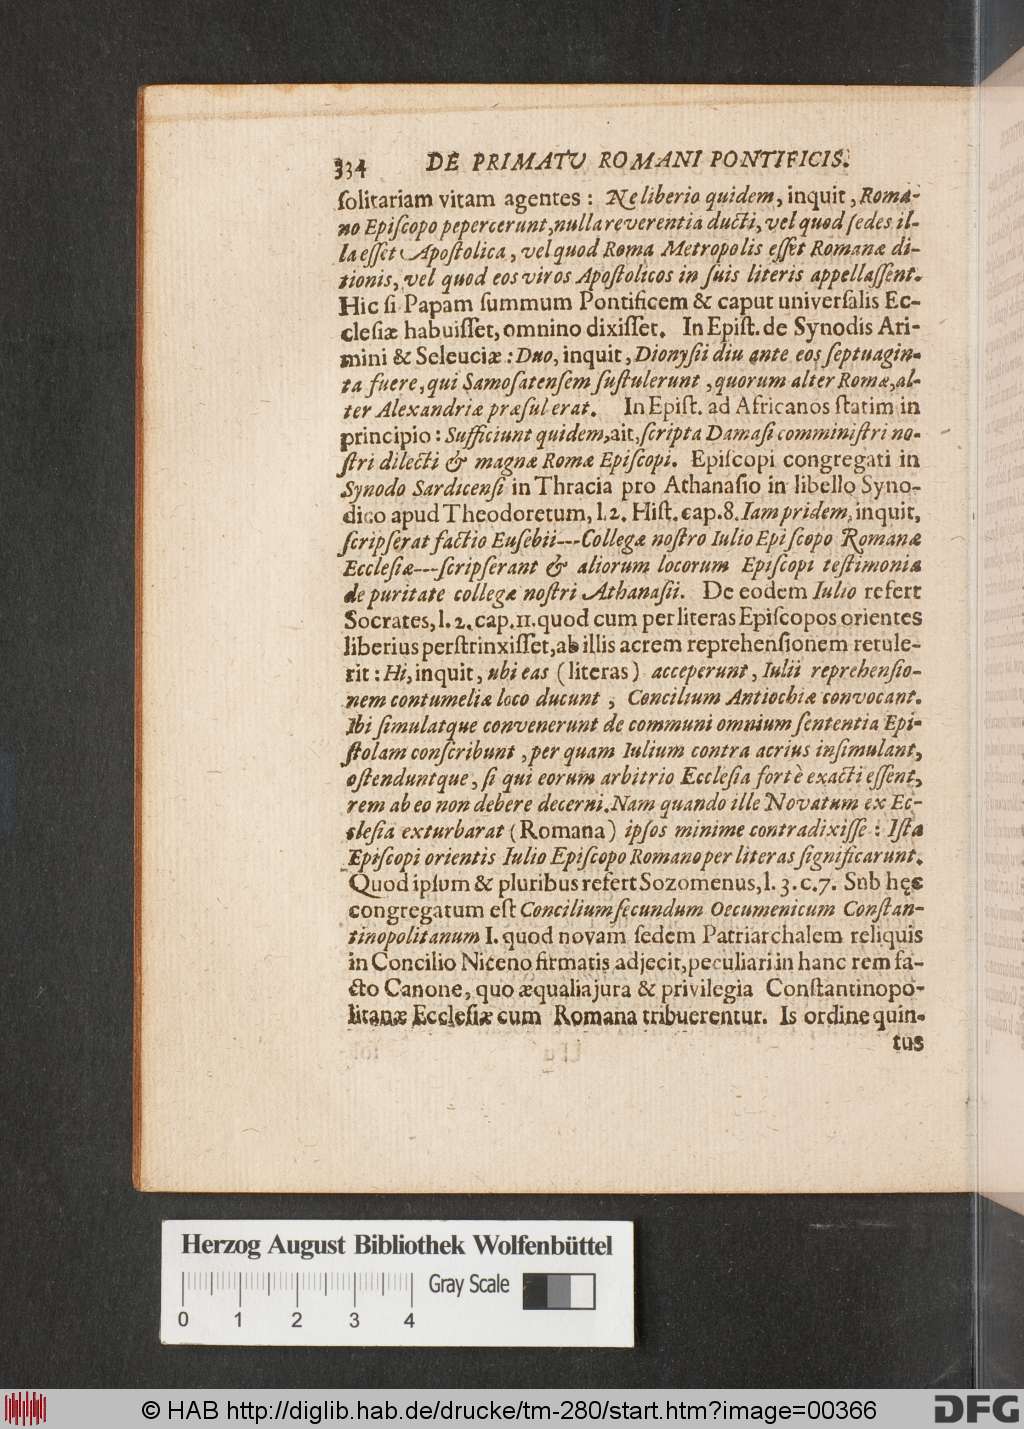 334 DE PRIMATU ROMANI PONTIFICIS.
ſolitariam vitam agentes : Ne liberio quidem, inquit, Roma-
no Epiſcopo pepercerunt, nulla reverentia ducti, vel quod ſedes il-
la eſſet Apoſtolica, vel quod Roma Metropolis eſſet Romanæ di-
tionis, vel quod eos viros Apoſtolicos in ſuis literis appellaſſent.
Hic ſi Papam ſummum Pontificem & caput univerſalis Ec-
cleſiæ habuiſſet, omnino dixiſſet. In Epiſt. de Synodis Ari-
mini & Seleuciæ : Duo, inquit, Dionyſii diu ante eos ſeptuagin-
ta fuere, qui Samoſatenſem ſuſtulerunt, quorum alter Romæ, al-
ter Alexandriæ præſul erat. In Epiſt. ad Africanos ſtatim in
principio : Sufficiunt quidem, ait, ſcripta Damaſi comminiſtri no-
ſtri dilecti & magnæ Romæ Epiſcopi. Epiſcopi congregati in
Synodo Sardicenſi in Thracia pro Athanaſio in libello Syno-
dico apud Theodoretum, l. 2. Hiſt. cap. 8. Iam pridem, inquit,
ſcripſerat factio Euſebii---Collegæ noſtro Iulio Epiſcopo Romanæ
Eccleſiæ---ſcripſerant & aliorum locorum Epiſcopi teſtimonia
de puritate collegæ noſtri Athanaſii. De eodem Iulio refert
Socrates, l. 2. cap. 11. quod cum per literas Epiſcopos orientes
liberius perſtrinxiſſet, ab illis acrem reprehenſionem retule-
rit : Hi, inquit, ubi eas (literas) acceperunt, Iulii reprehenſio-
nem contumeliæ loco ducunt, Concilium Antiochiæ convocant.
Ibi ſimulatque convenerunt de communi omnium ſententia Epi-
ſtolam conſcribunt, per quam Iulium contra acrius inſimulant,
oſtenduntque, ſi qui eorum arbitrio Eccleſia fortè exacti eſſent,
rem ab eo non debere decerni. Nam quando ille Novatum ex Ec-
cleſia exturbarat (Romana) ipſos minime contradixiſſe : Iſta
Epiſcopi orientis Iulio Epiſcopo Romano per literas ſignificarunt.
Quod ipſum & pluribus refert Sozomenus, l. 3. c. 7. Sub hęc
congregatum eſt Concilium ſecundum Oecumenicum Conſtan-
tinopolitanum I. quod novam ſedem Patriarchalem reliquis
in Concilio Niceno firmatis adjecit, peculiari in hanc rem fa-
cto Canone, quo æqualia jura & privilegia Conſtantinopo-
litanæ Eccleſiæ cum Romana tribuerentur. Is ordine quin-
tus
Herzog August Bibliothek Wolfenbüttel
Gray Scale
0 1 2 3 4
© HAB http://diglib.hab.de/drucke/tm-280/start.htm?image=00366
DFG